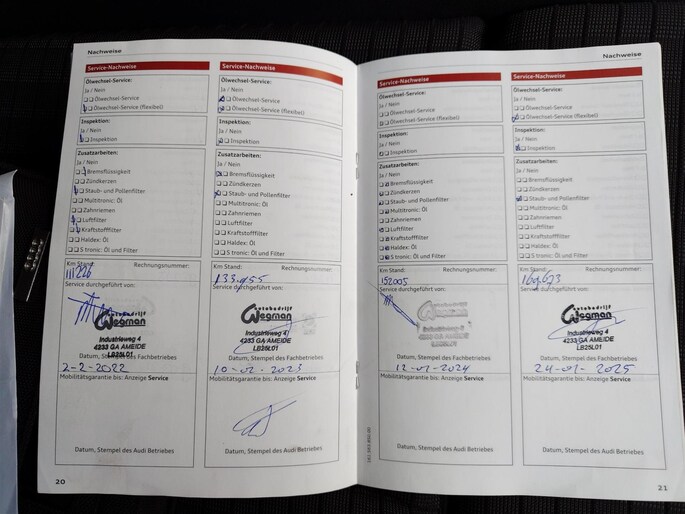 Nachweise
Service-Nachweise
Ölwechsel-Service:
Ja / Nein
Ölwechsel-Service
Ölwechsel-Service (flexibel)
Inspektion:
Ja / Nein
Inspektion
Zusatzarbeiten:
Ja / Nein
Bremsflüssigkeit
Zündkerzen
Staub- und Pollenfilter
Multitronic: Öl
Zahnriemen
Luftfilter
Kraftstofffilter
Haldex: Öl
S tronic: Öl und Filter
Km Stand: Rechnungsnummer:
111226
Service durchgeführt von:
Autobedrijf
Wegman
Industrieweg 4
4233 GA AMEIDE
LB25L01
Datum, Stempel des Fachbetriebes
2-2-2022
Mobilitätsgarantie bis: Anzeige Service
Datum, Stempel des Audi Betriebes
20
Service-Nachweise
Ölwechsel-Service:
Ja / Nein
Ölwechsel-Service
Ölwechsel-Service (flexibel)
Inspektion:
Ja / Nein
Inspektion
Zusatzarbeiten:
Ja / Nein
Bremsflüssigkeit
Zündkerzen
Staub- und Pollenfilter
Multitronic: Öl
Zahnriemen
Luftfilter
Kraftstofffilter
Haldex: Öl
S tronic: Öl und Filter
Km Stand: Rechnungsnummer:
Service durchgeführt von:
Autobedrijf
Wegman
Industrieweg 4
4233 GA AMEIDE
LB25L01
Datum, Stempel des Fachbetriebes
10-02-2023
Mobilitätsgarantie bis: Anzeige Service
Datum, Stempel des Audi Betriebes
Nachweise
Service-Nachweise
Ölwechsel-Service:
Ja / Nein
Ölwechsel-Service
Ölwechsel-Service (flexibel)
Inspektion:
Ja / Nein
Inspektion
Zusatzarbeiten:
Ja / Nein
Bremsflüssigkeit
Zündkerzen
Staub- und Pollenfilter
Multitronic: Öl
Zahnriemen
Luftfilter
Kraftstofffilter
Haldex: Öl
S tronic: Öl und Filter
Km Stand: Rechnungsnummer:
152005
Service durchgeführt von:
Autobedrijf
Wegman
Industrieweg 4
4233 GA AMEIDE
LB25L01
Datum, Stempel des Fachbetriebes
12-01-2024
Mobilitätsgarantie bis: Anzeige Service
Datum, Stempel des Audi Betriebes
Service-Nachweise
Ölwechsel-Service:
Ja / Nein
Ölwechsel-Service
Ölwechsel-Service (flexibel)
Inspektion:
Ja / Nein
Inspektion
Zusatzarbeiten:
Ja / Nein
Bremsflüssigkeit
Zündkerzen
Staub- und Pollenfilter
Multitronic: Öl
Zahnriemen
Luftfilter
Kraftstofffilter
Haldex: Öl
S tronic: Öl und Filter
Km Stand: Rechnungsnummer:
Service durchgeführt von:
Autobedrijf
Wegman
Industrieweg 4
4233 GA AMEIDE
LB25L01
Datum, Stempel des Fachbetriebes
24-01-2025
Mobilitätsgarantie bis: Anzeige Service
Datum, Stempel des Audi Betriebes
21